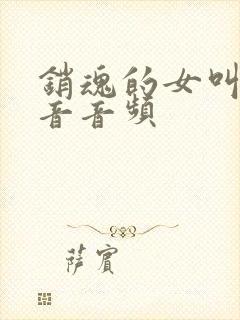 銷魂的女叫
音音頻
薩賓